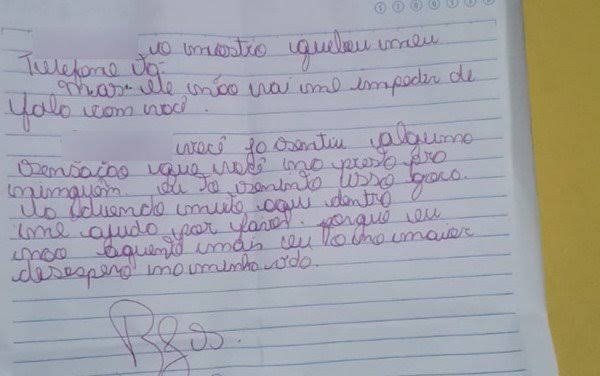 o mostro quebou meu
Telefone Ja.
Mas ele não vai me impeder de
falo com você.
você ja sentiu alguma
sensação que você no presta pro
ninguem. eu to senindo isso gora.
to duendo muito aqui dentro
me ajudo por favor. porque eu
não aguento mais eu to no maior
desespero no minha vida.